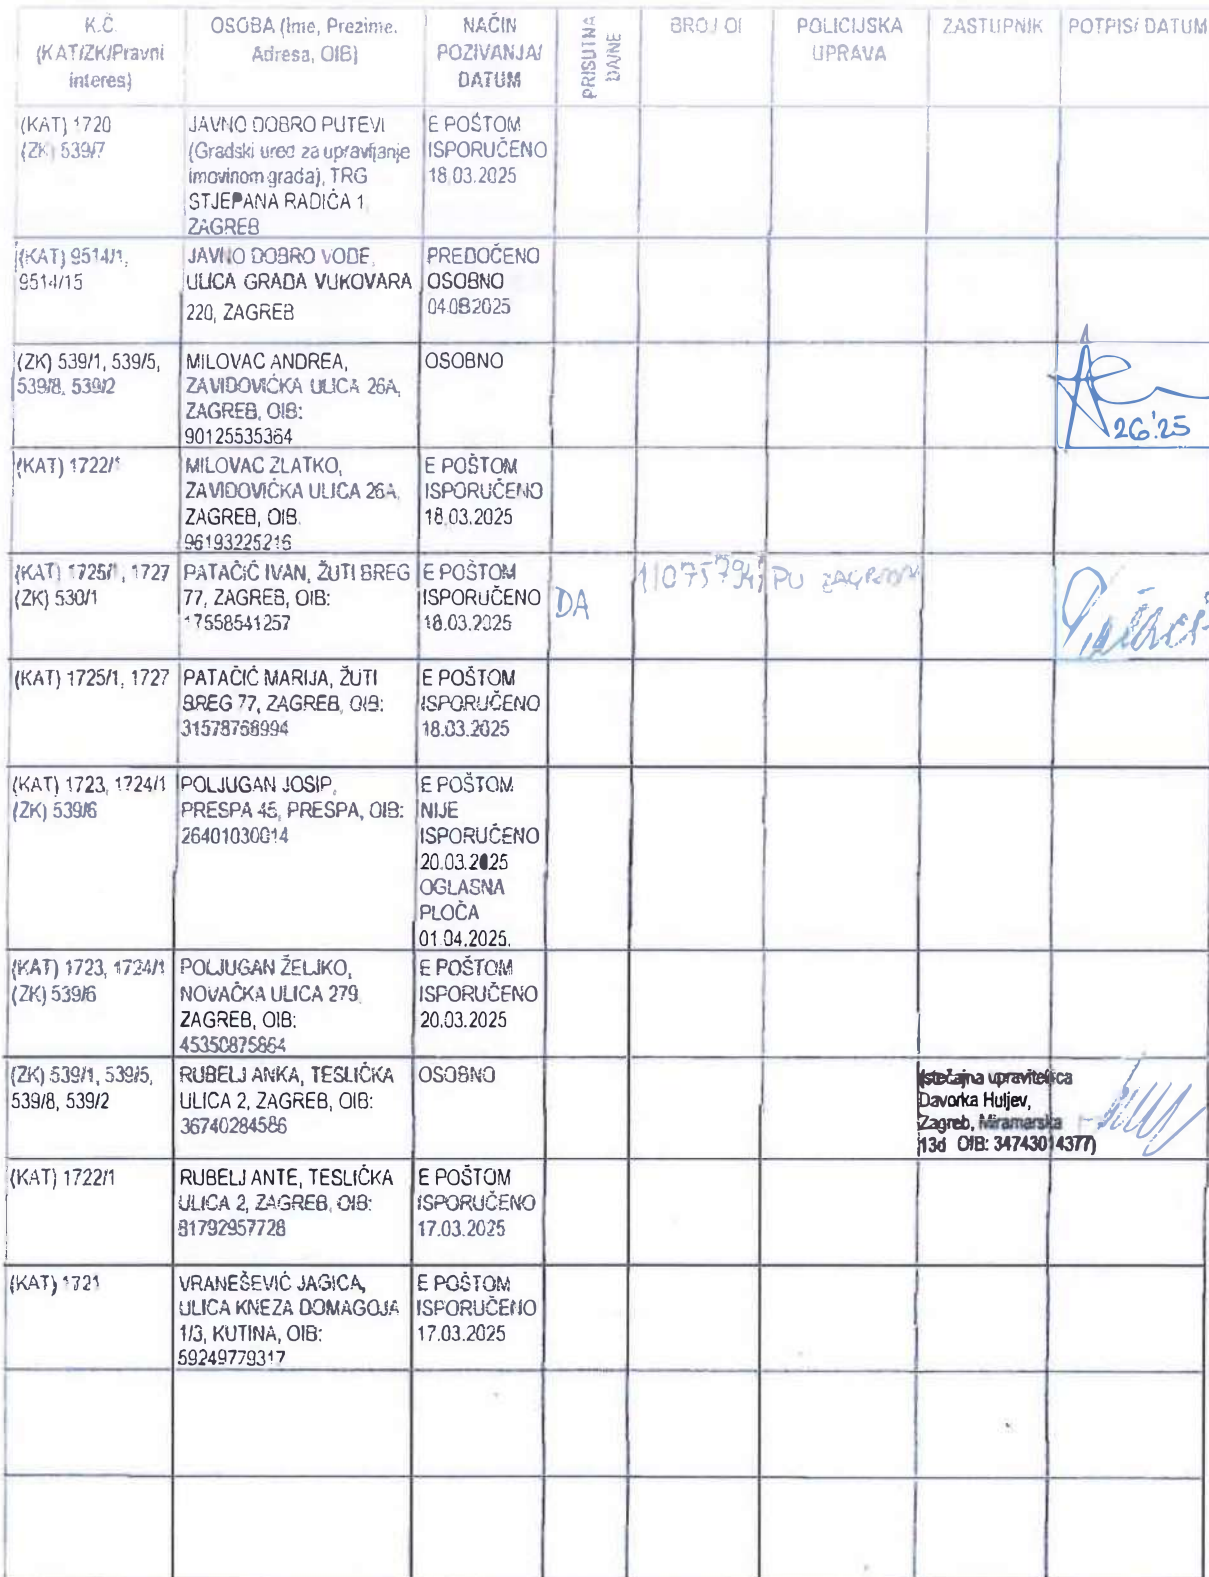 K.Č.
(KAT/ZK/Pravni
interes)
OSOBA (Ime, Prezime,
Adresa, OIB)
NAČIN
POZIVANJA/
DATUM
PRISUTNA
DA/NE
BROJ OI
POLICIJSKA
UPRAVA
ZASTUPNIK
POTPIS/ DATUM
(KAT) 1720
(ZK) 539/7
JAVNO DOBRO PUTEVI
(Gradski ured za upravljanje
imovinom grada), TRG
STJEPANA RADIĆA 1,
ZAGREB
E POŠTOM
ISPORUČENO
18.03.2025
(KAT) 9514/1,
9514/15
JAVNO DOBRO VODE,
ULICA GRADA VUKOVARA
220, ZAGREB
PREDOČENO
OSOBNO
(ZK) 539/1, 539/5,
539/8, 539/2
MILOVAC ANDREA,
ZAVIDOVIĆKA ULICA 26A,
ZAGREB, OIB:
90125535364
OSOBNO
(KAT) 1722/1
MILOVAC ZLATKO,
ZAVIDOVIĆKA ULICA 26A,
ZAGREB, OIB:
96193225216
E POŠTOM
ISPORUČENO
18.03.2025
(KAT) 1725/1, 1727
(ZK) 530/1
PATAČIĆ IVAN, ŽUTI BREG
77, ZAGREB, OIB:
17558541257
E POŠTOM
ISPORUČENO
18.03.2025
DA
PU ZAGREBAČKA
(KAT) 1725/1, 1727
PATAČIĆ MARIJA, ŽUTI
BREG 77, ZAGREB, OIB:
31578758994
E POŠTOM
ISPORUČENO
18.03.2025
(KAT) 1723, 1724/1
(ZK) 539/6
POLJUGAN JOSIP,
PRESPA 45, PRESPA, OIB:
26401030014
E POŠTOM
NIJE
ISPORUČENO
20.03.2025
OGLASNA
PLOČA
01.04.2025.
(KAT) 1723, 1724/1
(ZK) 539/6
POLJUGAN ŽELJKO,
NOVAČKA ULICA 279,
ZAGREB, OIB:
45350875864
E POŠTOM
ISPORUČENO
20.03.2025
(ZK) 539/1, 539/5,
539/8, 539/2
RUBELJ ANKA, TESLIĆKA
ULICA 2, ZAGREB, OIB:
36740284586
OSOBNO
(stečajna upraviteljica
Davorka Huljev,
Zagreb, Miramarska
13d OIB: 34743014377)
(KAT) 1722/1
RUBELJ ANTE, TESLIĆKA
ULICA 2, ZAGREB, OIB:
81792957728
E POŠTOM
ISPORUČENO
17.03.2025
(KAT) 1721
VRANEŠEVIĆ JAGICA,
ULICA KNEZA DOMAGOJA
1/3, KUTINA, OIB:
59249779317
E POŠTOM
ISPORUČENO
17.03.2025